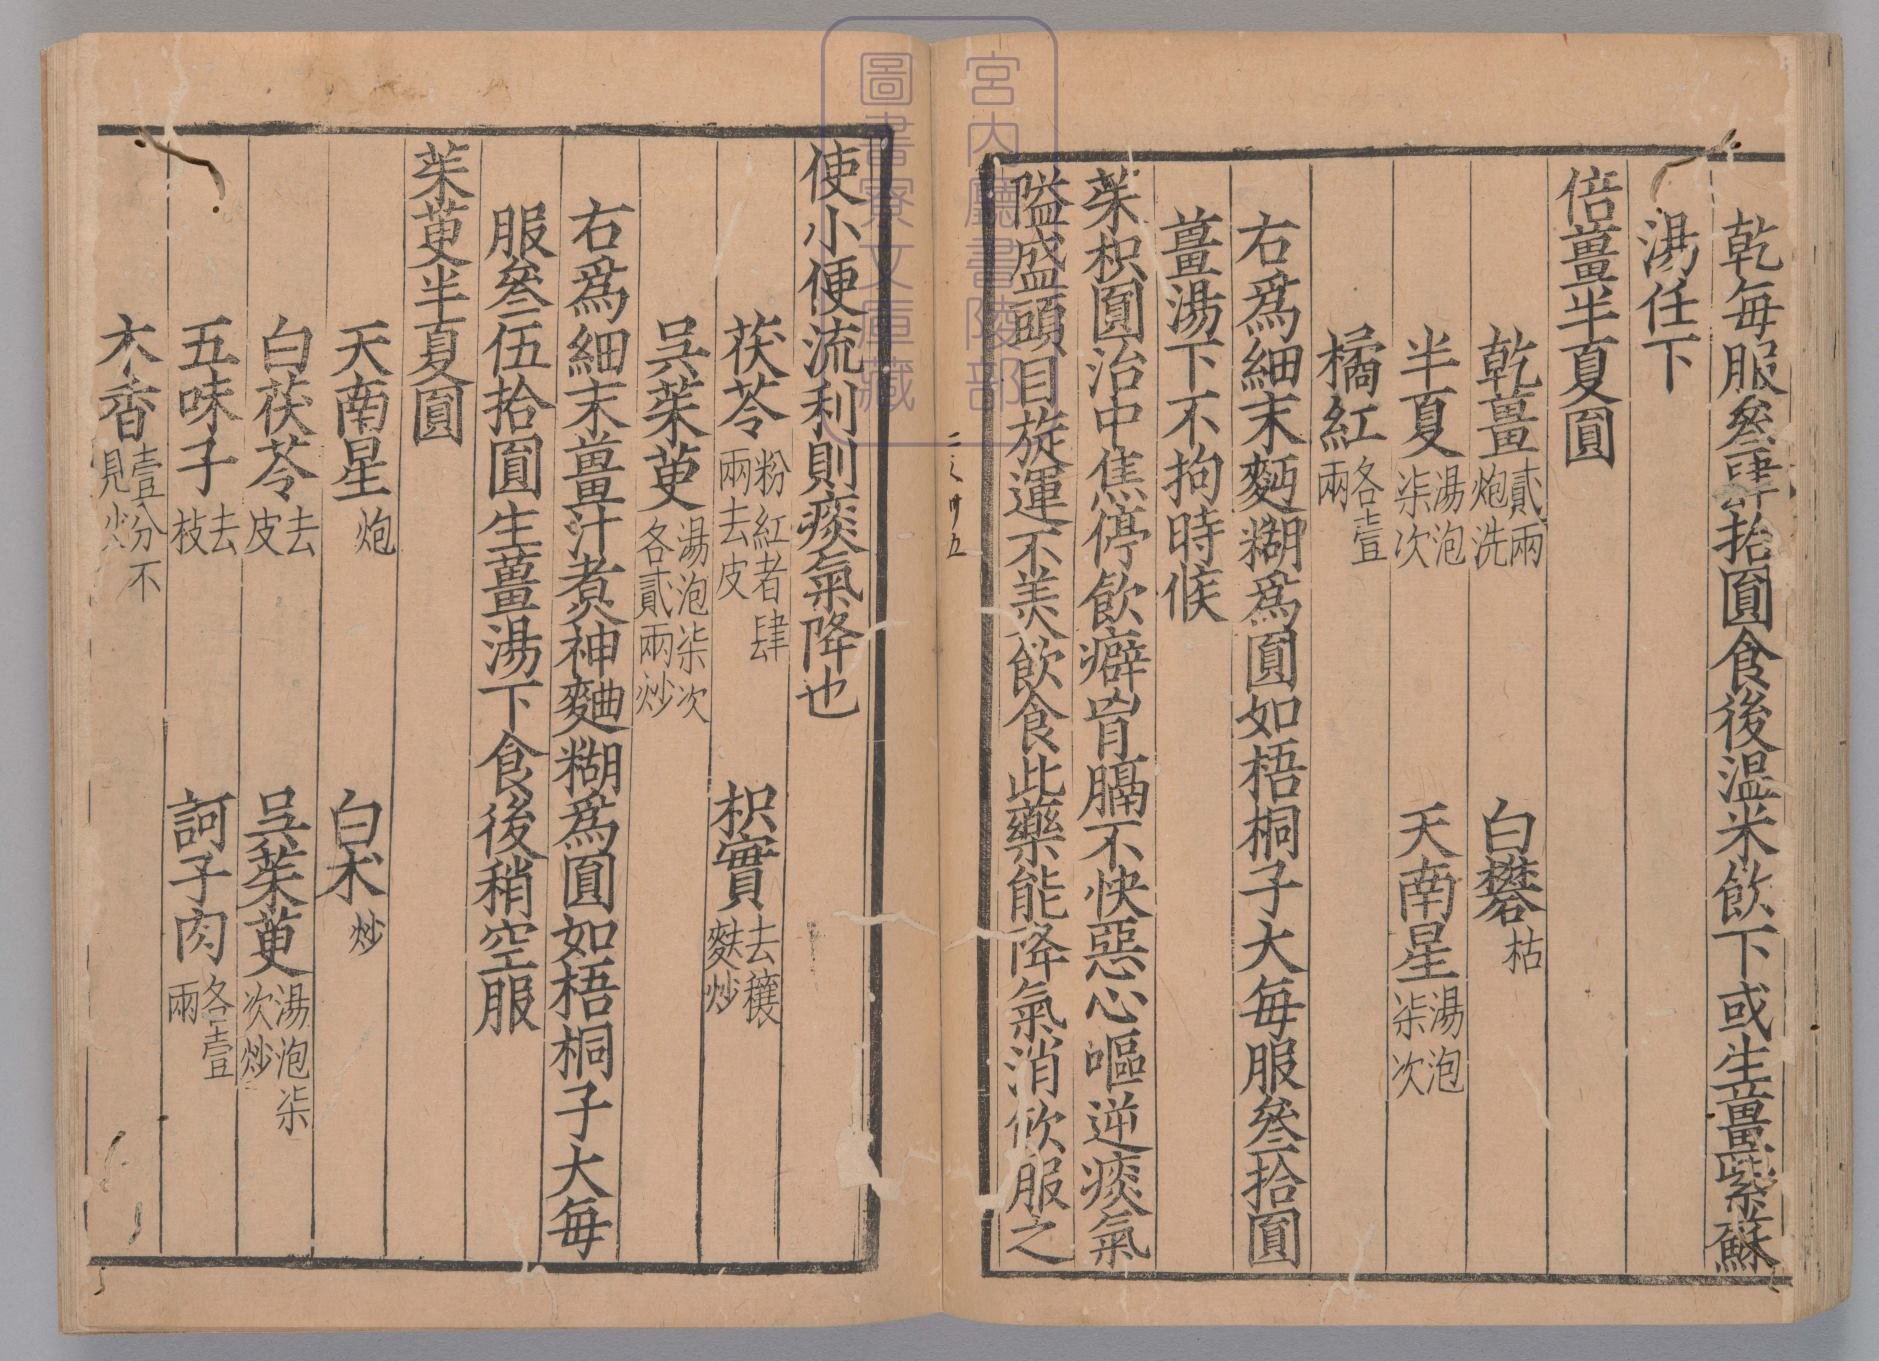 乾毎服叄肆拾圓食後温米飲下或生薑紫蘇
湯任下
倍薑半夏圓
乾薑貳兩炮洗 白礬枯
半夏湯泡柒次 天南星湯泡柒次
橘紅各壹兩
右爲細末麪糊爲圓如梧桐子大每服叄拾圓
薑湯下不拘時候
茱枳圓治中焦停飲癖胷膈不快惡心嘔逆痰氣
隘盛頭目旋運不美飲食此藥能降氣消飲服之
二之四十五
使小便流利則痰氣降也
茯苓粉紅者肆兩去皮 枳實去穰麩炒
吳茱萸湯泡柒次各貳兩炒
右爲細末薑汁煮神麯糊爲圓如梧桐子大每
服叄伍拾圓生薑湯下食後稍空服
茱萸半夏圓
天南星炮 白朮炒
白茯苓去皮 吳茱萸湯泡柒次炒
五味子去枝 訶子肉各壹兩
木香壹分不見火
宮内廳書陵部
圖書寮文庫藏